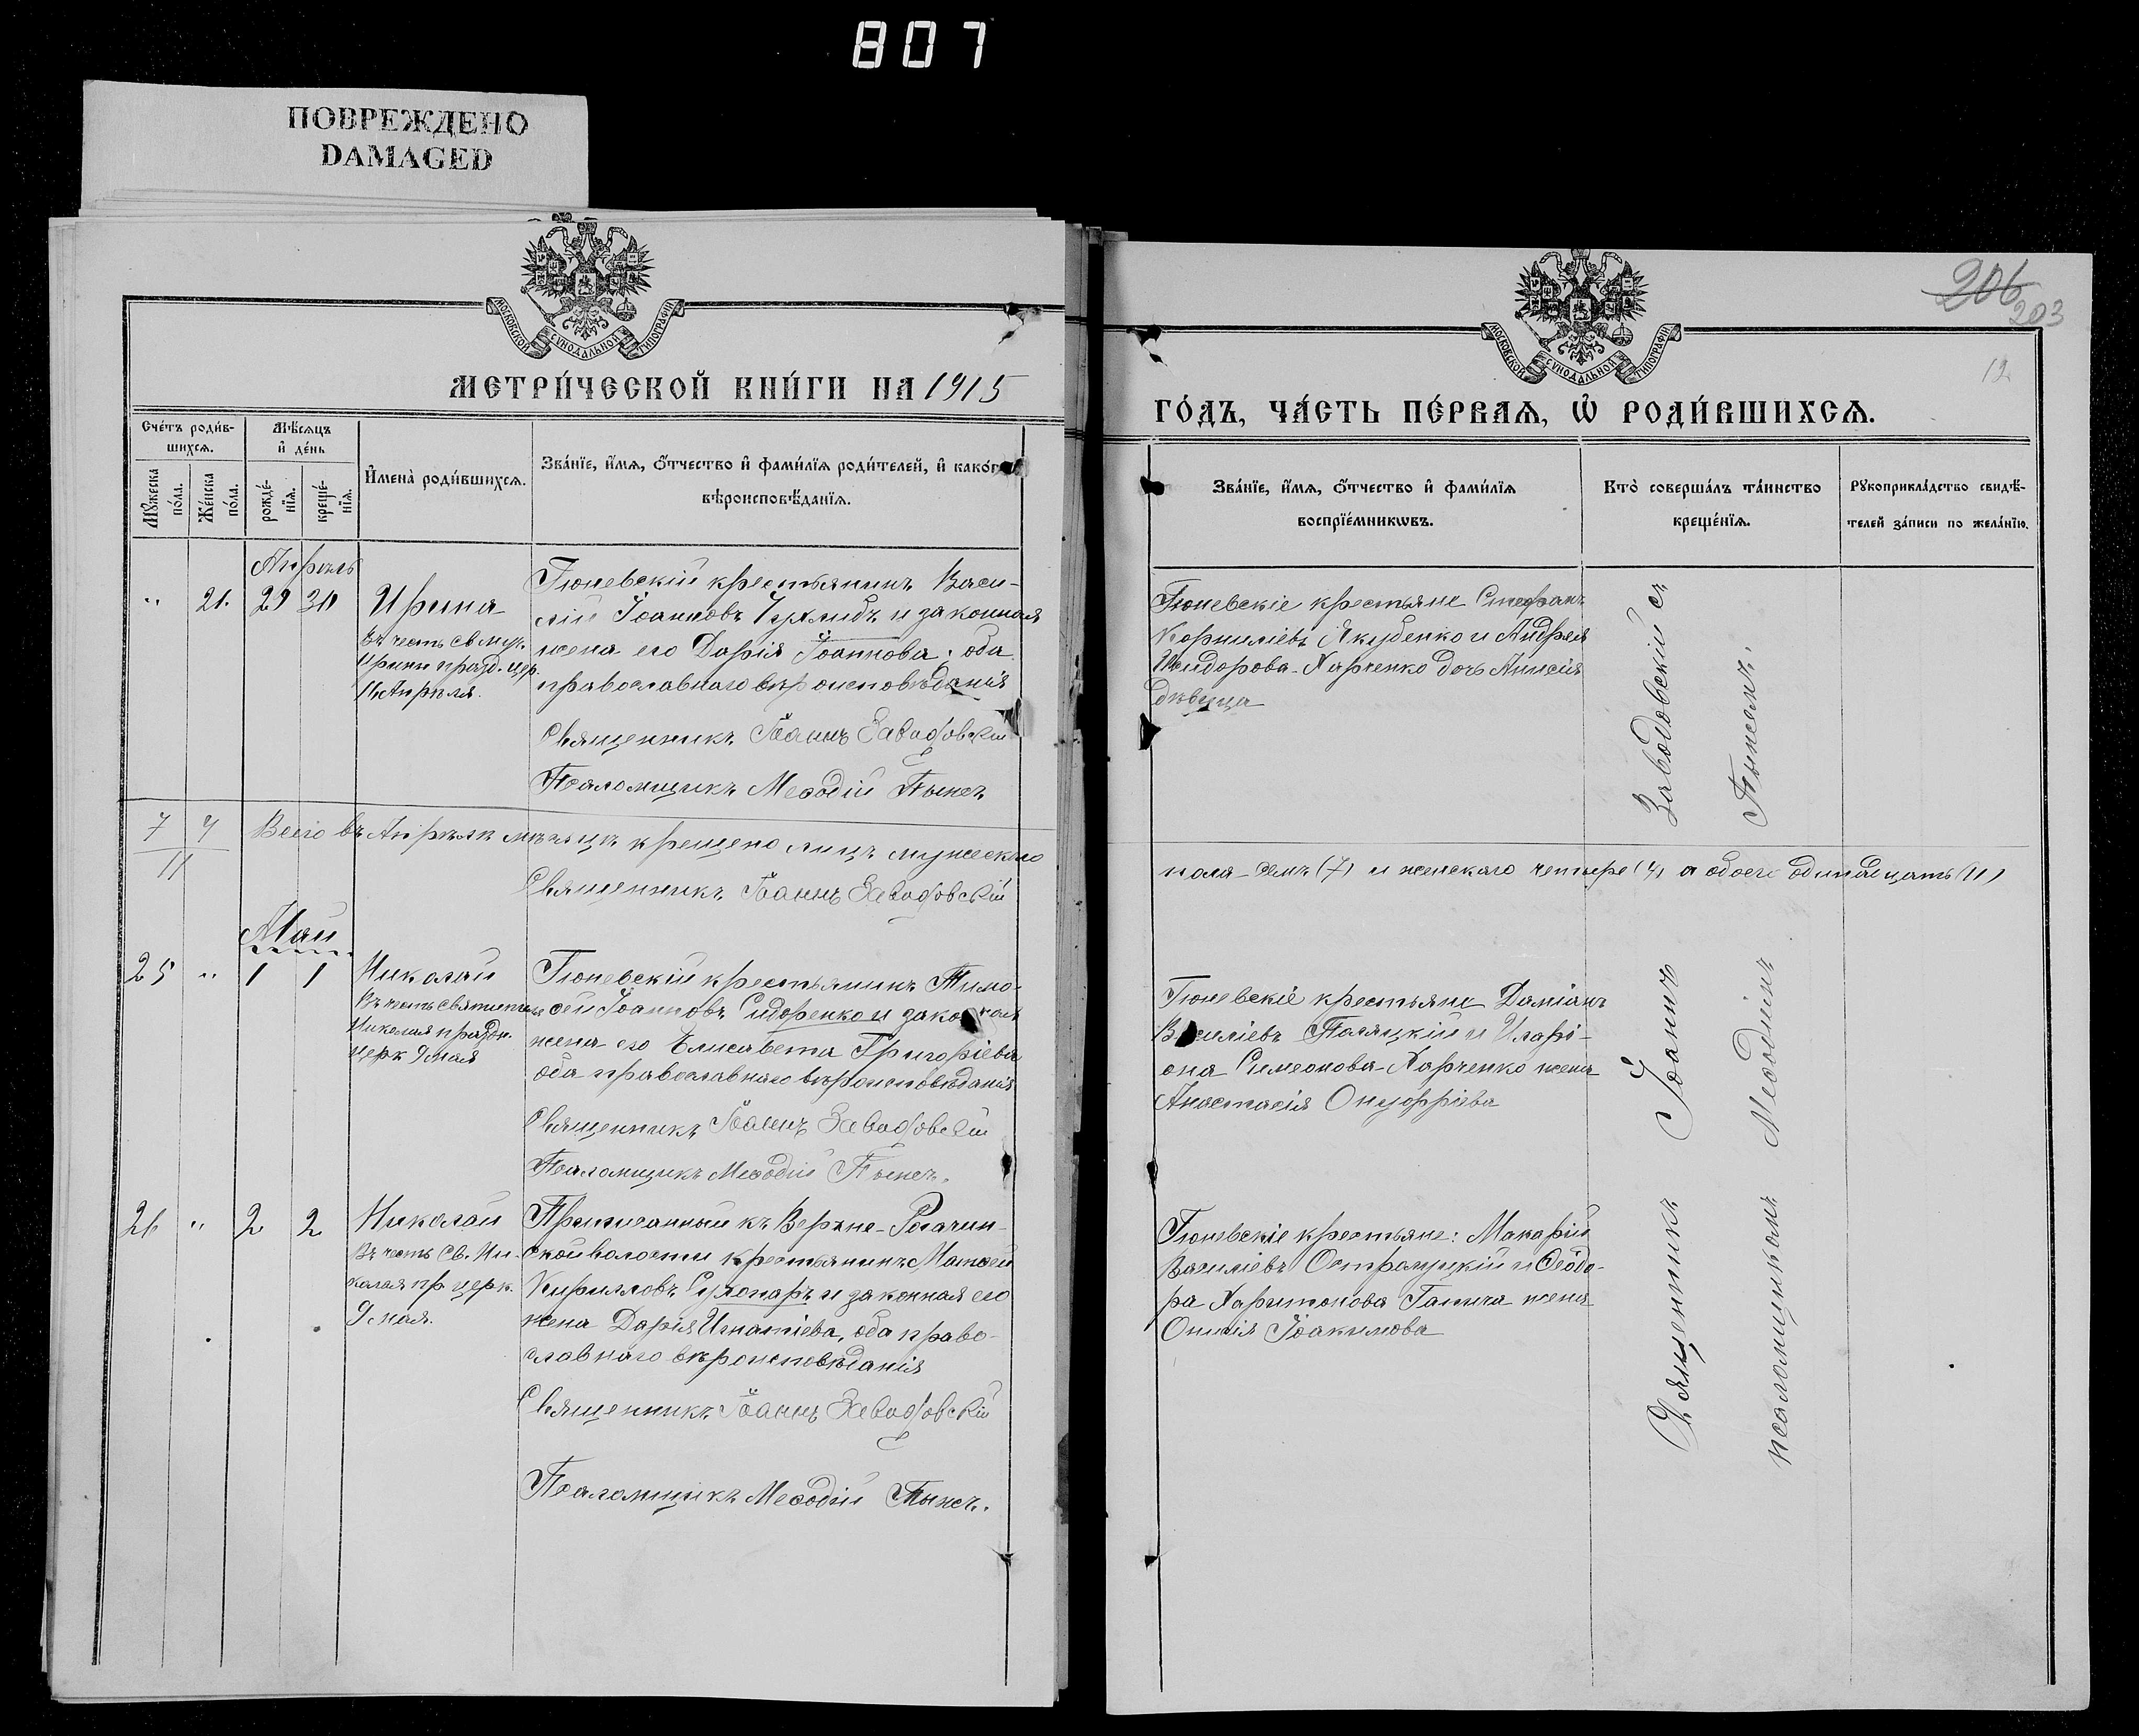 807
ПОВРЕЖДЕНО
DAMAGED
МОСКОВСКОЙ СѴНОДАЛЬНОЙ ТИПОГРАФІИ
МЕТРИ́ЧЕСКОЙ КНИ́ГИ НА 1915
Сче́тъ роди́в-
шихсѧ.
Мѣ́сѧцъ
и҆ де́нь
Мꙋ́жеска
по́ла.
Же́нска
по́ла.
рожде́-
нїѧ.
креще́-
нїѧ.
И҆мена̀ роди́вшихсѧ.
Зва́нїе, и҆́мѧ, ѻ҆́тчество и҆ фами́лїѧ роди́телей, и҆ како́гѡ
вѣроисповѣ́данїѧ.
Апрѣль
" 21. 29 30 Ирина
Въ честь св муч.
Ирины празд. цер.
16 Апрѣля.
Гюневскій крестьянинъ Васи-
лій Іоанновъ и законная
жена его Дарія Іоаннова; оба
православнаго вѣроисповѣданія
Священникъ Іоаннъ Заводовскій
Псаломщикъ Меѳодій
7 4 Всего въ Апрѣлѣ мѣсяцѣ крещено лицъ мужескаго
11
Священникъ Іоаннъ Заводовскій
Май
25 " 1 1 Николай
Въ честь святителя
Николая праздн.
церк 9 мая
Гюневскій крестьянинъ Тимо-
ѳей Іоанновъ Сидоренко и законная
жена его Елисавета Григоріева
оба православнаго вѣроисповѣданія
Священникъ Іоаннъ Заводовскій
Псаломщикъ Меѳодій
26 " 2 2 Николай
Въ честь св. Ни-
колая пр церк.
9 мая.
Приписанный къ Верхне-Рогачин-
ской волости крестьянинъ Матѳей
Кирилловъ и законная его
жена Дарія Игнатіева, оба право-
славнаго вѣроисповѣданія
Священникъ Іоаннъ Заводовскій
Псаломщикъ Меѳодій
206
203
12
МОСКОВСКОЙ СѴНОДАЛЬНОЙ ТИПОГРАФІИ
ГО́ДЪ, ЧА́СТЬ ПЕ́РВАѦ, Ѡ҆ РОДИ́ВШИХСѦ.
Зва́нїе, и҆́мѧ, ѻ҆́тчество и҆ фами́лїѧ
воспрїе́мникѡвъ.
Кто̀ соверша́лъ та́инство
креще́нїѧ.
Рꙋкоприкла́дство свидѣ́-
телей за́писи по жела́нїю.
Гюневскіе крестьяне Стефанъ
Корниліевъ Якубенко и Андрея
Исидорова Харченко дочь Анисія
дѣвица
пола-семь (7) и женскаго четыре (4) а обоего одинадцать (11)
Гюневскіе крестьяне Даміанъ
Василіевъ и Иларі-
она Симеонова Харченко жена
Анастасія Онуфріева
Гюневскіе крестьяне: Макарій
Василіевъ и Ѳеодо-
ра Харитонова Ганича жена
Іоакимова
Священникъ Іоаннъ Заводовскій съ
псаломщикомъ Меѳодіемъ